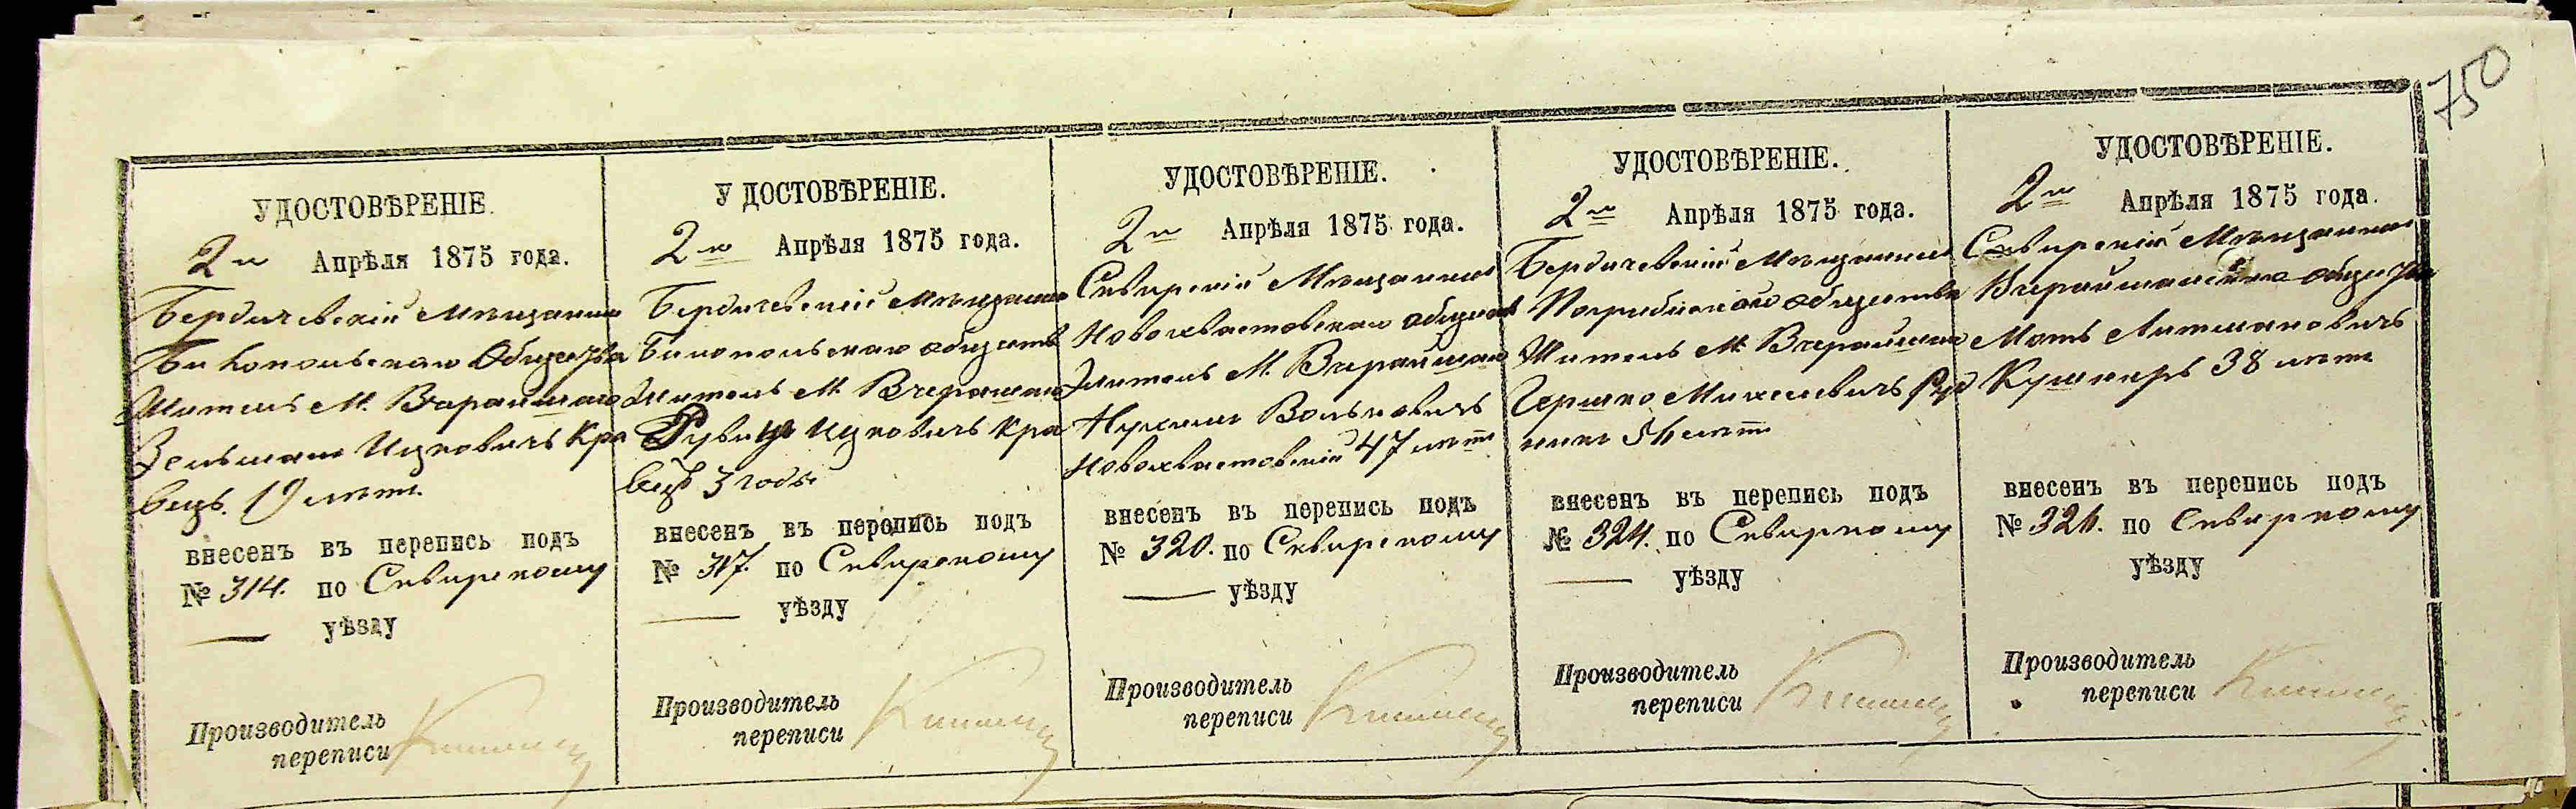 750
УДОСТОВѢРЕНІЕ.
2го Апрѣля 1875 года.
Бердичевскій Мѣщанинъ
Бѣлопольскаго Общества
Житель М. Вчерайшаго
Зельманъ Ицковичъ Кра
вецъ. 19 лѣтъ.
внесенъ въ перепись подъ
№ 314. по Сквирскому
— уѣзду
Производитель
переписи
У ДОСТОВѢРЕНІЕ.
2го Апрѣля 1875 года.
Бердичевскій Мѣщанинъ
Бѣлопольскаго общества
Житель М. Вчерайшаго
Рувинъ Ицковичъ Кра
вецъ 3 года
внесенъ въ перепись подъ
№ 317. по Сквирскому
— уѣзду
Производитель
переписи
УДОСТОВѢРЕНІЕ.
2го Апрѣля 1875 года.
Сквирскій Мѣщанинъ
Новохвастовскаго общества
Житель М. Вчерайшаго
Нухимъ Вольковичъ
Новохвастовскій 47 лѣтъ
внесенъ въ перепись подъ
№ 320. по Сквирскому
— уѣзду
Производитель
переписи
УДОСТОВѢРЕНІЕ.
2го Апрѣля 1875 года.
Бердичевскій Мѣщанинъ
Погребискаго общества
Житель М. Вчерайшаго
Гершко Михелевичъ Руд
никъ 56 лѣтъ
внесенъ въ перепись подъ
№ 324. по Сквирскому
— уѣзду
Производитель
переписи
УДОСТОВѢРЕНІЕ.
2го Апрѣля 1875 года.
Сквирскій Мѣщанинъ
Вчерайшанскаго общества
Моть Литмановичъ
Кушниръ 38 лѣтъ
внесенъ въ перепись подъ
№ 326. по Сквирскому
уѣзду
Производитель
переписи